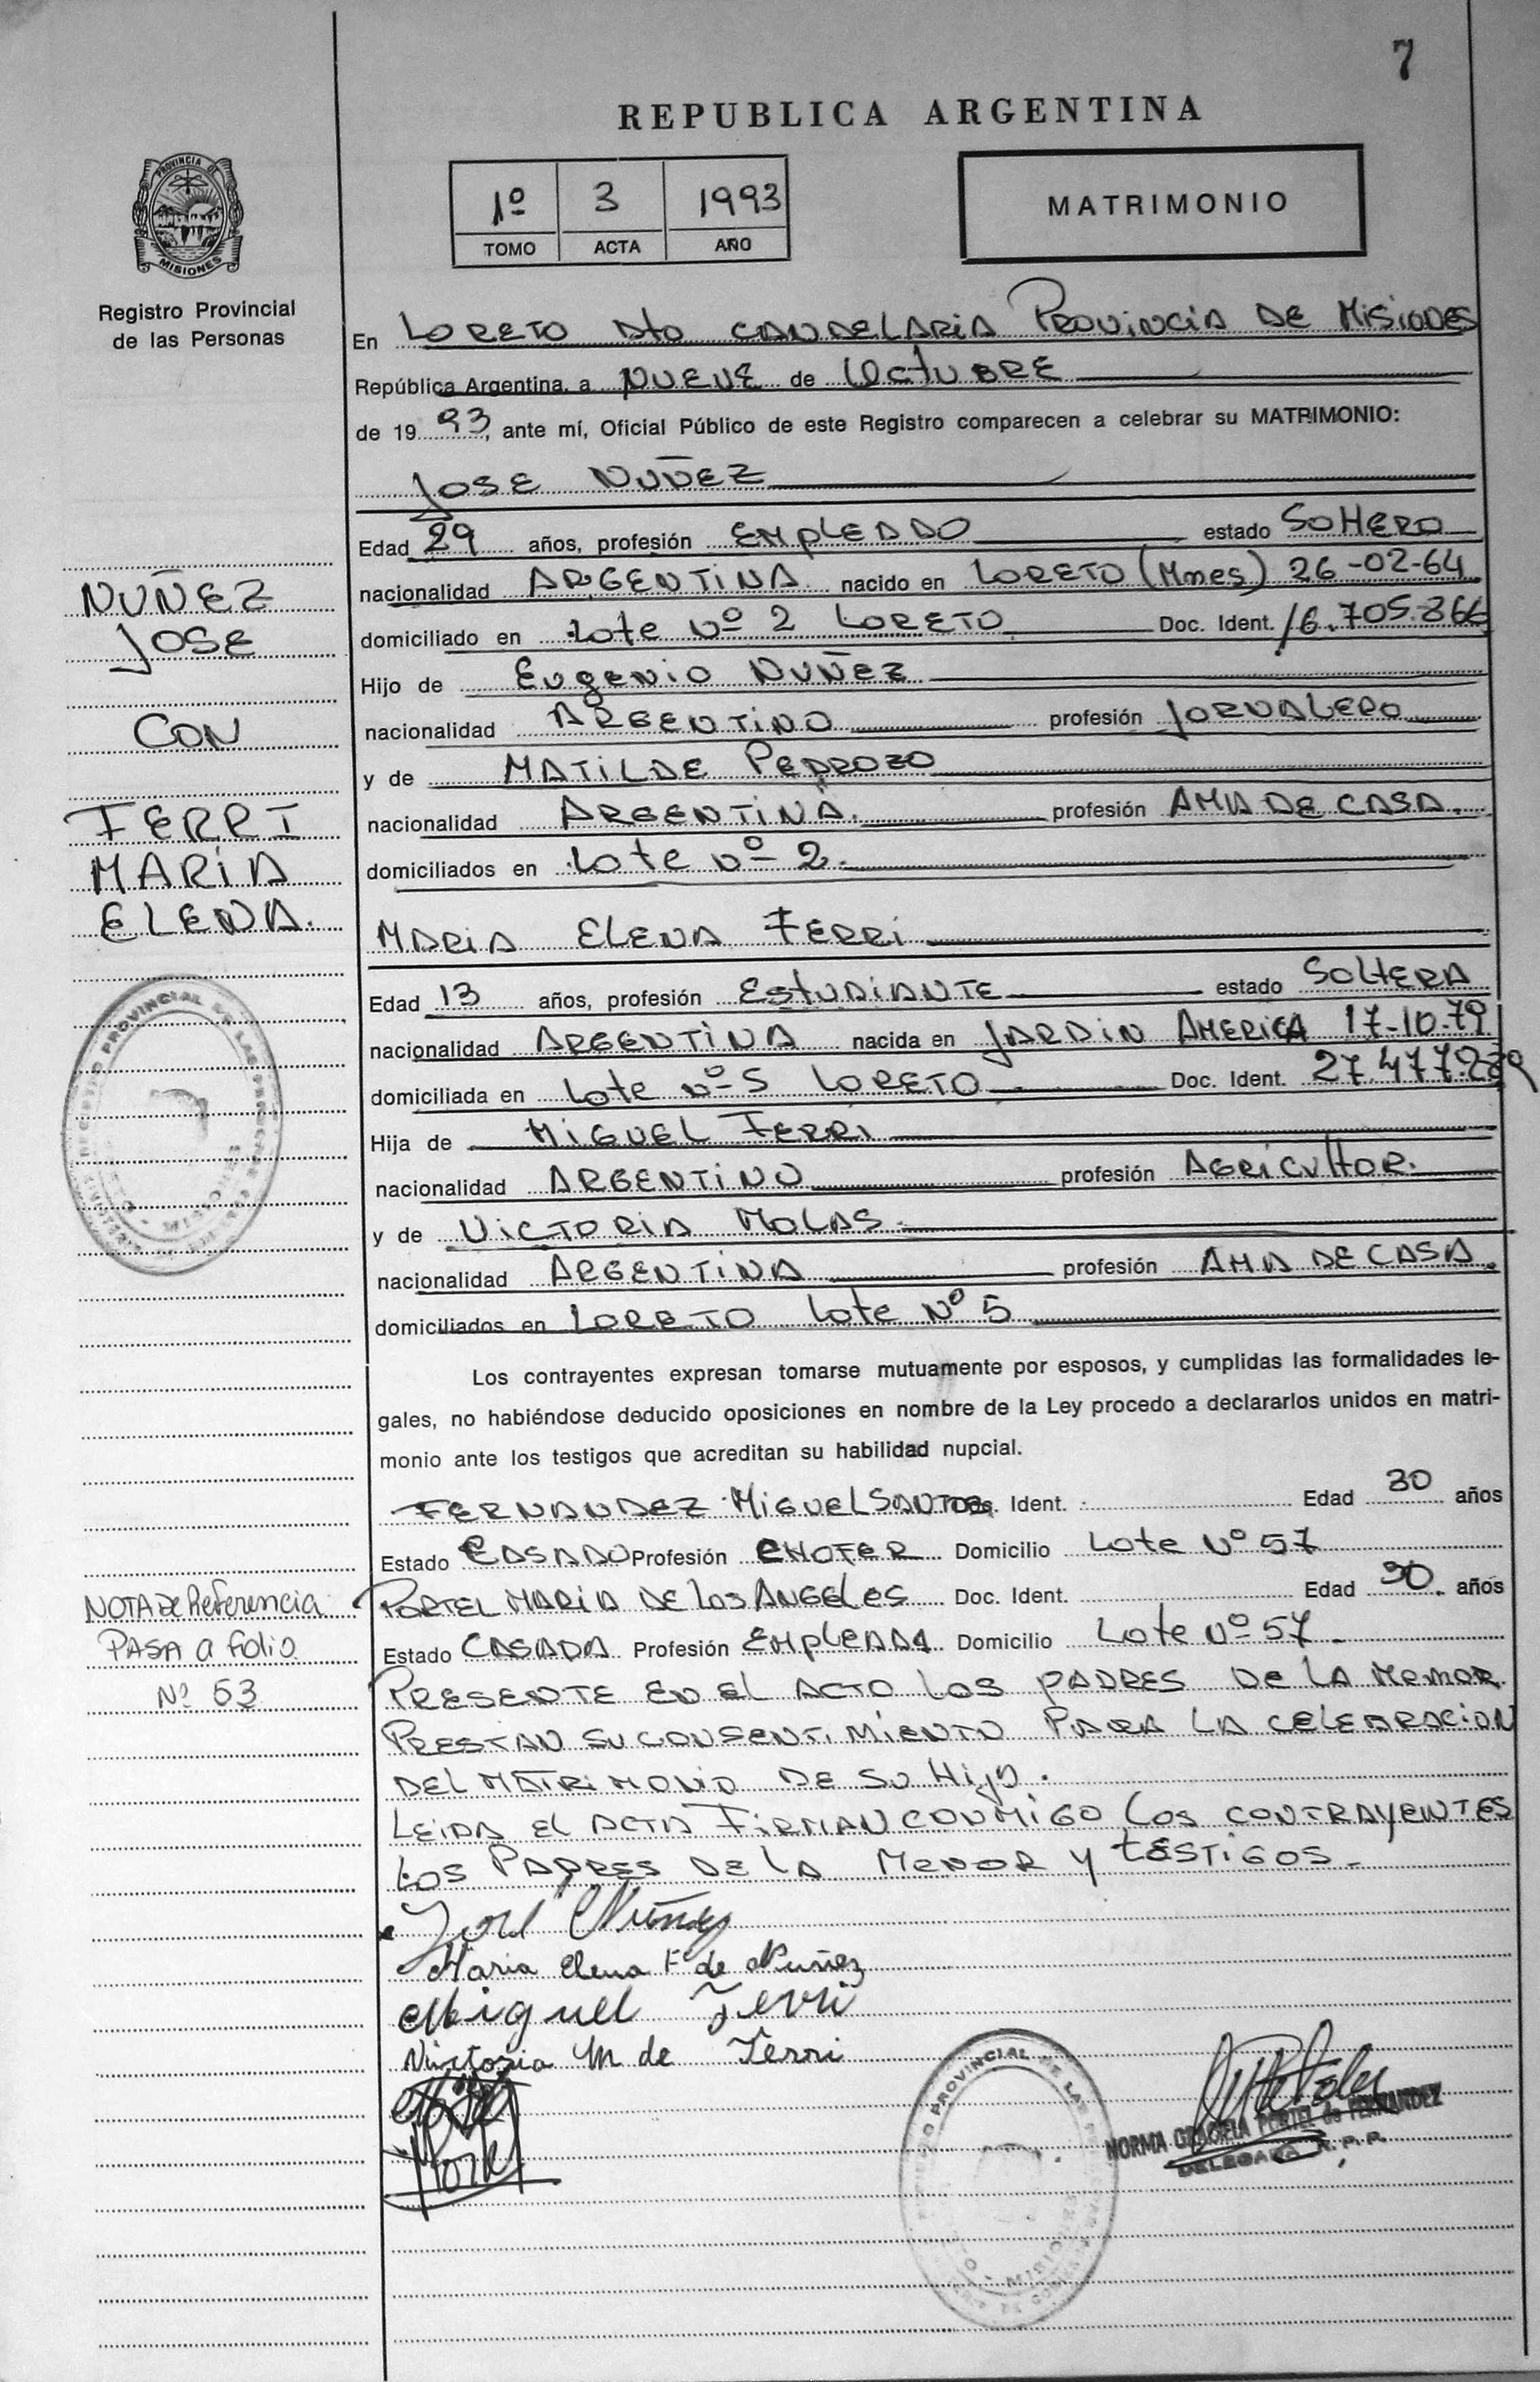 7
REPUBLICA ARGENTINA
PROVINCIA DE
MISIONES
Registro Provincial
de las Personas
1º 3 1993
TOMO ACTA AÑO
MATRIMONIO
En LORETO Dto CANDELARIA PROVINCIA DE MISIONES
República Argentina, a NUEVE de OCTUBRE
de 1993, ante mí, Oficial Público de este Registro comparecen a celebrar su MATRIMONIO:
JOSE NUÑEZ
Edad 29 años, profesión EMPLEADO estado SOLTERO
nacionalidad ARGENTINA nacido en LORETO (Mnes) 26-02-64
domiciliado en Lote Nº 2 LORETO Doc. Ident. 16.705.866
Hijo de Eugenio NUÑEZ
nacionalidad ARGENTINO profesión JORNALERO
y de MATILDE PEDROZO
nacionalidad ARGENTINA. profesión AMA DE CASA.
domiciliados en Lote Nº 2.
MARIA ELENA FERRI
Edad 13 años, profesión ESTUDIANTE estado SOLTERA
nacionalidad ARGENTINA nacida en JARDIN AMERICA 17-10-79
domiciliada en Lote Nº 5 LORETO Doc. Ident. 27.477.289
Hija de MIGUEL FERRI
nacionalidad ARGENTINO profesión AGRICULTOR.
y de VICTORIA MOLAS.
nacionalidad ARGENTINA profesión AMA DE CASA.
domiciliados en LORETO Lote Nº 5
Los contrayentes expresan tomarse mutuamente por esposos, y cumplidas las formalidades le-
gales, no habiéndose deducido oposiciones en nombre de la Ley procedo a declararlos unidos en matri-
monio ante los testigos que acreditan su habilidad nupcial.
FERNANDEZ MIGUEL SANTOS Ident. Edad 30 años
Estado CASADO Profesión CHOFER Domicilio Lote Nº 57
PORTEL MARIA DE LOS ANGELES Doc. Ident. Edad 30. años
Estado CASADA Profesión EMPLEADA Domicilio Lote Nº 57.
PRESENTE EN EL ACTO LOS PADRES DE LA MENOR
PRESTAN SU CONSENTIMIENTO PARA LA CELEBRACION
DEL MATRIMONIO DE SU HIJA.
LEIDA EL ACTA FIRMAN CONMIGO LOS CONTRAYENTES
LOS PADRES DE LA MENOR Y TESTIGOS.
José Núñez
Maria Elena F. de Nuñez
Miguel Ferri
Victoria M de Ferri
NORMA GRACIELA PORTEL de FERNANDEZ
DELEGADA R.P.P.
NUÑEZ
JOSE
CON
FERRI
MARIA
ELENA.
NOTA DE Referencia
PASA a folio
Nº 53
REGISTRO PROVINCIAL DE LAS PERSONAS
MISIONES
PROVINCIAL DE LAS
MISIONES